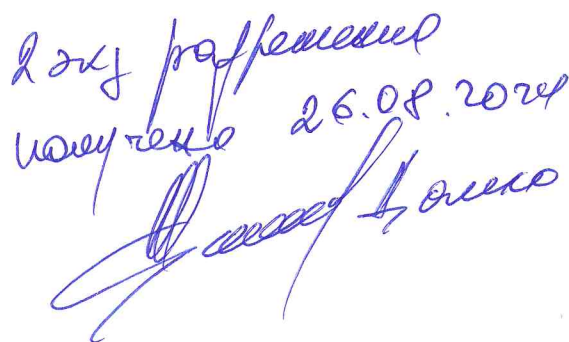 2 экз разрешения
получено 26.08.2024